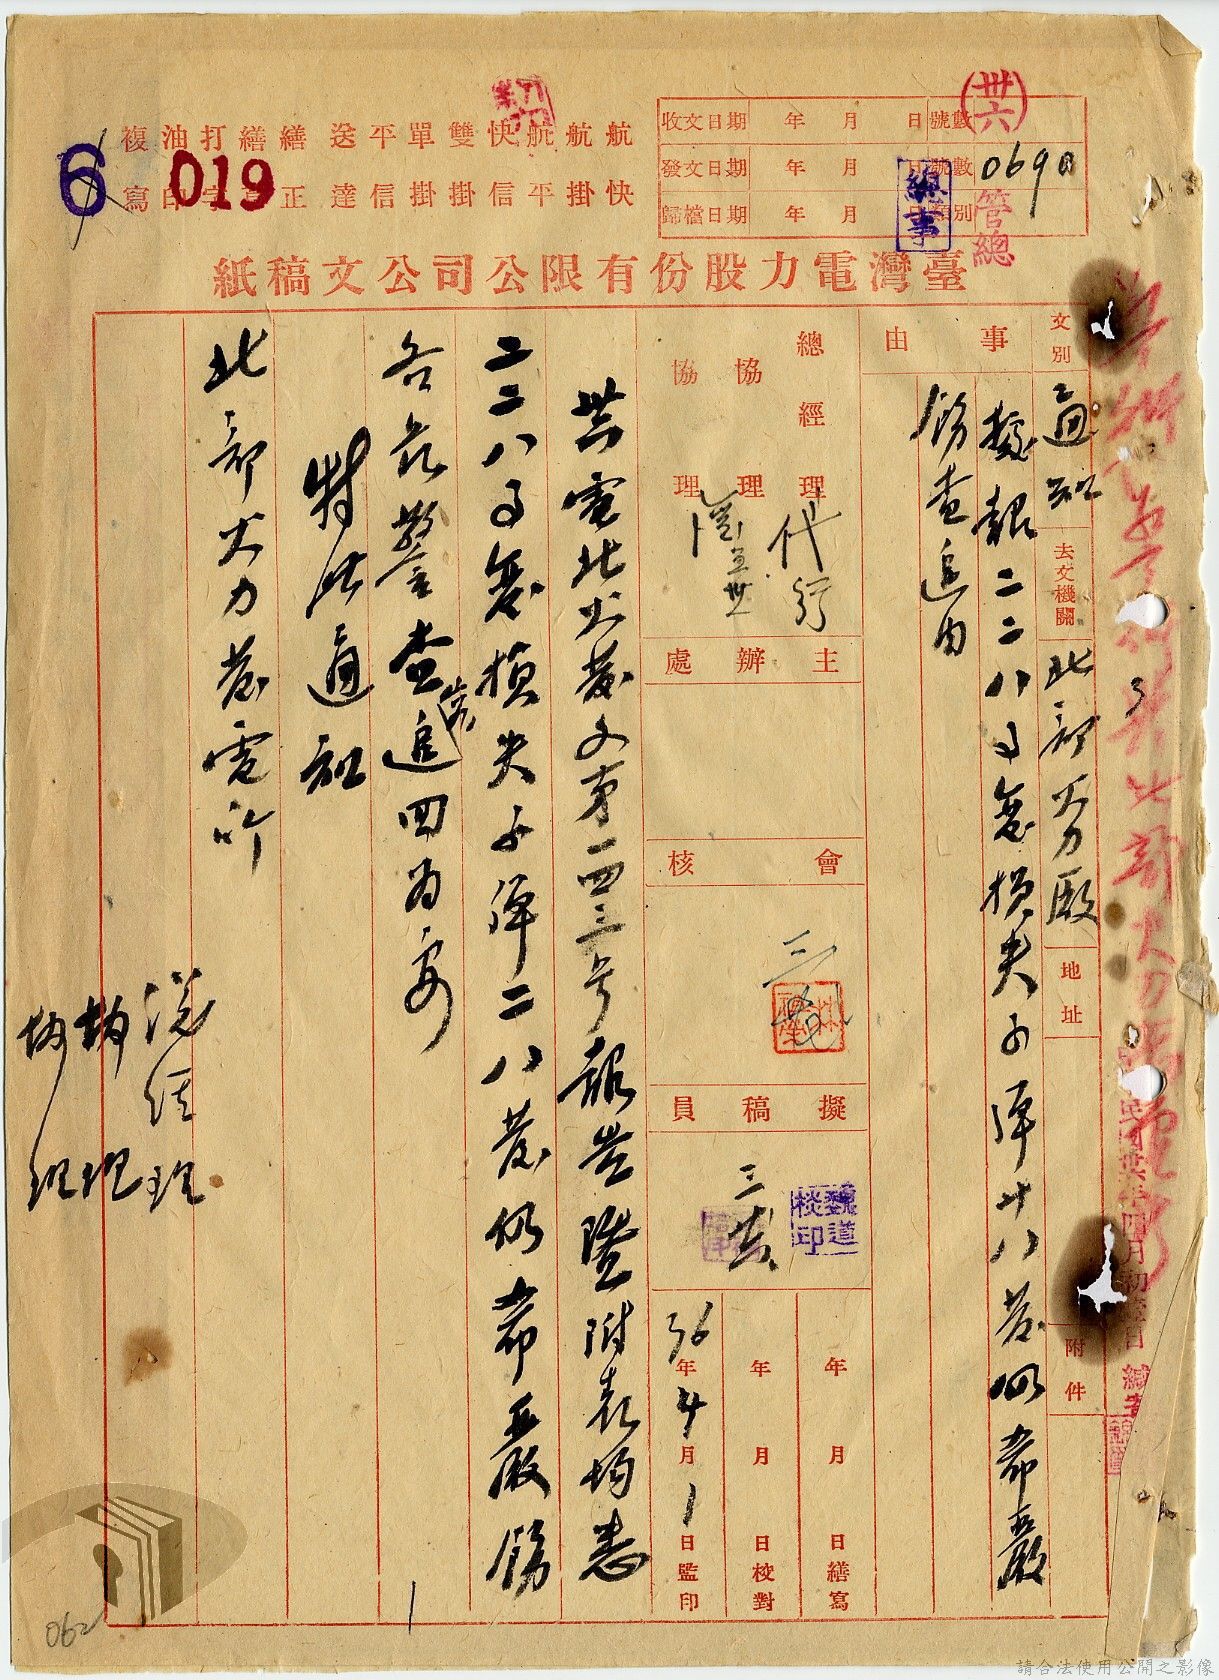 收文日期 年 月 日 號數
發文日期 年 月 日 號數 0690
歸檔日期 年 月 日 類別
(卅六)
管總
總事
航快
航掛
航平
快信
雙掛
單掛
平信
送達
繕正
打字
油印
複寫
6
019
臺灣電力股份有限公司公文稿紙
文別
通知
去文機關
北部火力廠
地址
附件
事由
據報二二八事變損失子彈廿八發仍希嚴
飭查追由
總經理
代行
協理
協理
主辦處
會核
擬稿員
魏道棪印
年 月 日繕寫
年 月 日校對
36年4月1日監印
電北火發文第一四三號報告暨附表均悉
二二八事變損失子彈二八發仍希嚴飭
各員警查追回為要
特此通知
北部火力發電所
總經理
協理
協理
062
請合法使用公開之影像